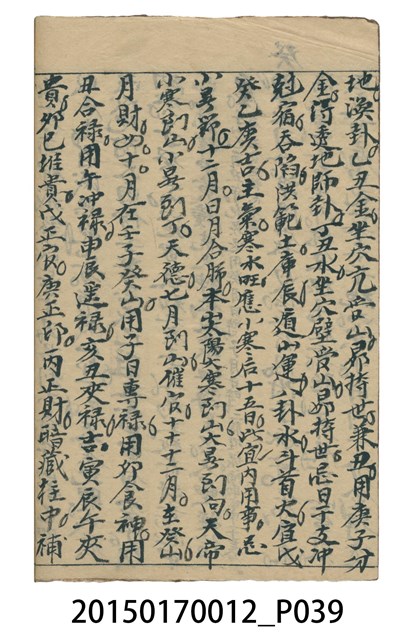 地渙卦乙丑金坐穴亢受山昴持世兼丑用庚子分
金河透地師卦丁丑水坐穴壁受山昴持世忌日干支冲
尅宿吞陷洪範土庫辰遁山運八卦水斗首火官氏
癸乙庚吉主氣寒水旺應小寒后十五日此宜內用事忌
小暑節十二月日月合師本大陽大寒到山大暑到向天帝
小寒到山小暑到丁天德七月到山催官十十二月在癸山
月財四十月在壬子癸山用子日專祿用卯食神用
丑合祿用午冲祿申辰遥祿亥丑夾祿吉寅辰午夾
貴卯巳堆貴戊正官庚正卯丙正財暗藏在中補
20150170012_P039